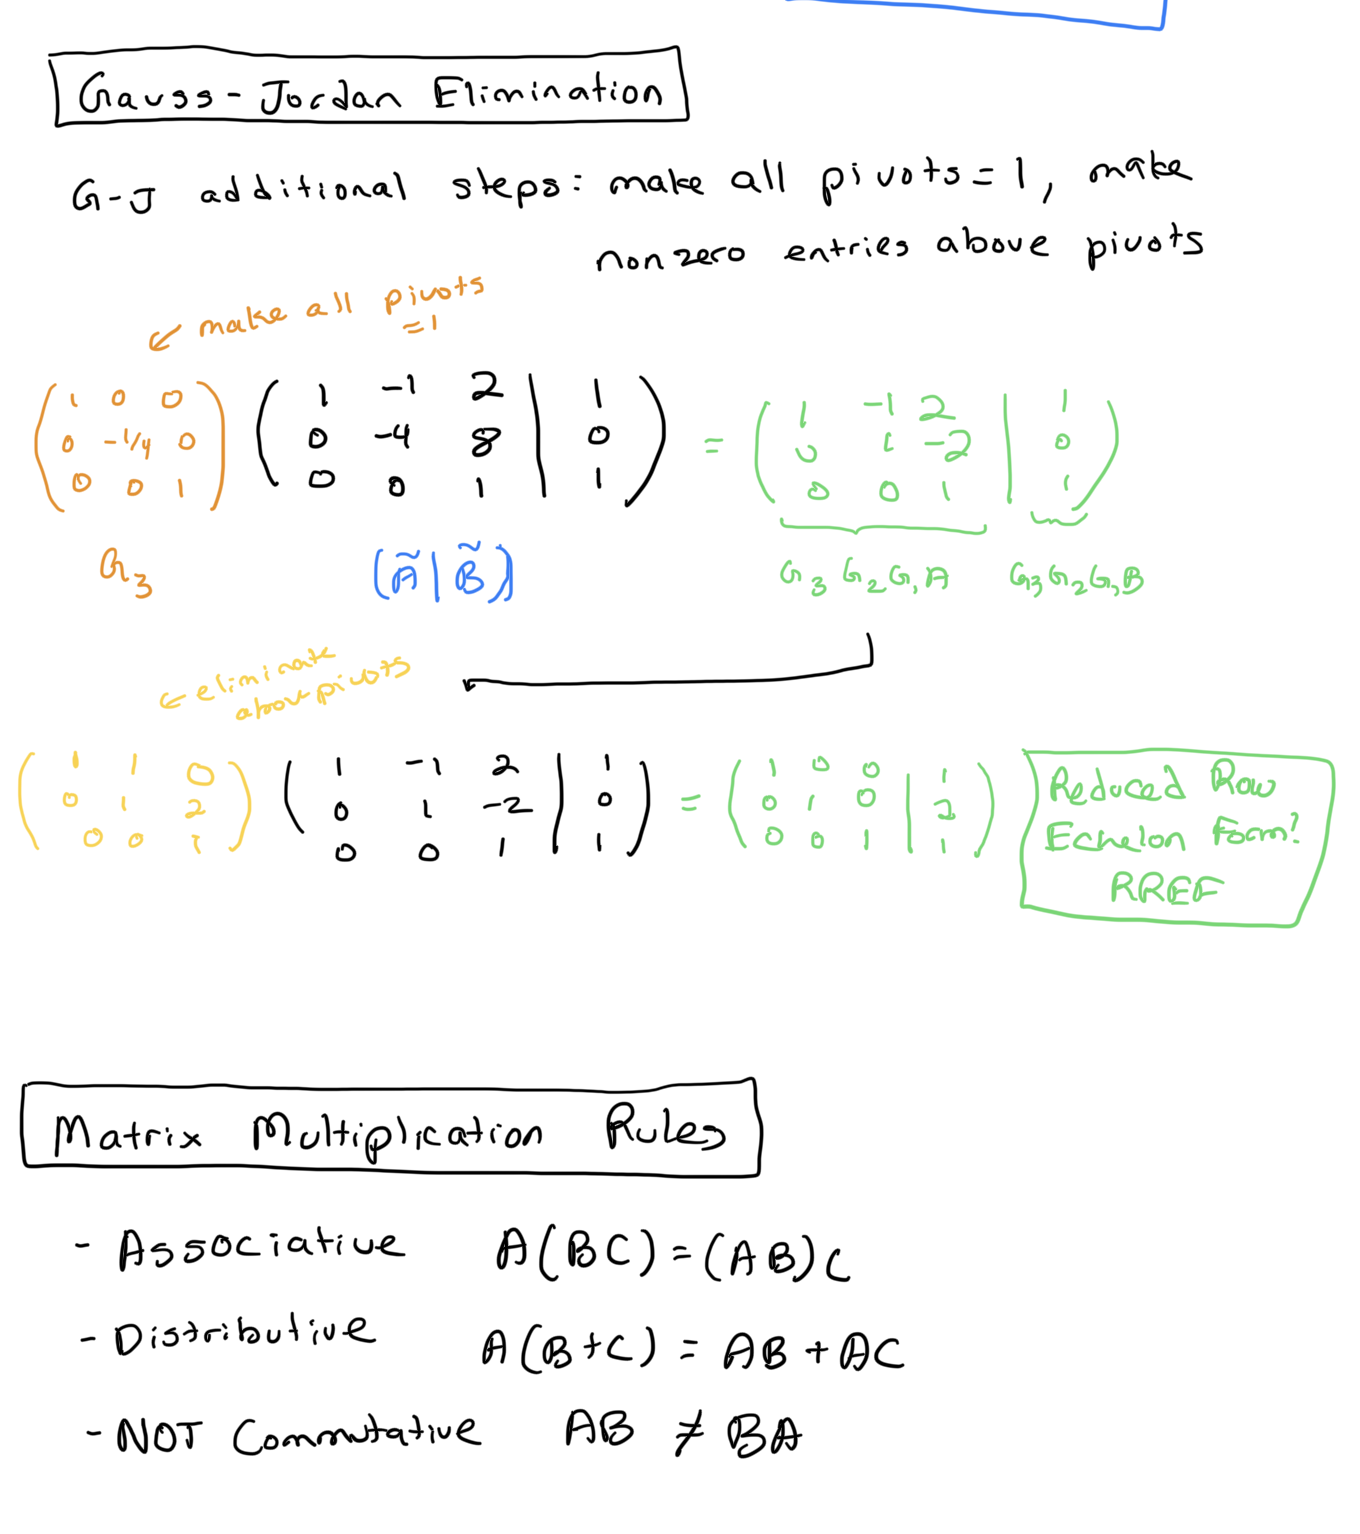 Gauss-Jordan Elimination
G-J additional steps: make all pivots = 1, make
nonzero entries above pivots
↙ make all pivots
= 1
( 1 0 0 ) ( 1 -1 2 | 1 ) = ( 1 -1 2 | 1 )
( 0 -1/4 0 ) ( 0 -4 8 | 0 ) ( 0 1 -2 | 0 )
( 0 0 1 ) ( 0 0 1 | 1 ) ( 0 0 1 | 1 )
G₃ (Ã | B̃) G₃ G₂ G₁ A G₃ G₂ G₁ B
← eliminate
above pivots
( 1 1 0 ) ( 1 -1 2 | 1 ) = ( 1 0 0 | 1 )
( 0 1 2 ) ( 0 1 -2 | 0 ) ( 0 1 0 | 2 )
( 0 0 1 ) ( 0 0 1 | 1 ) ( 0 0 1 | 1 )
Reduced Row
Echelon Form?
RREF
Matrix Multiplication Rules
- Associative A(BC) = (AB)C
- Distributive A(B+C) = AB + AC
- NOT Commutative AB ≠ BA